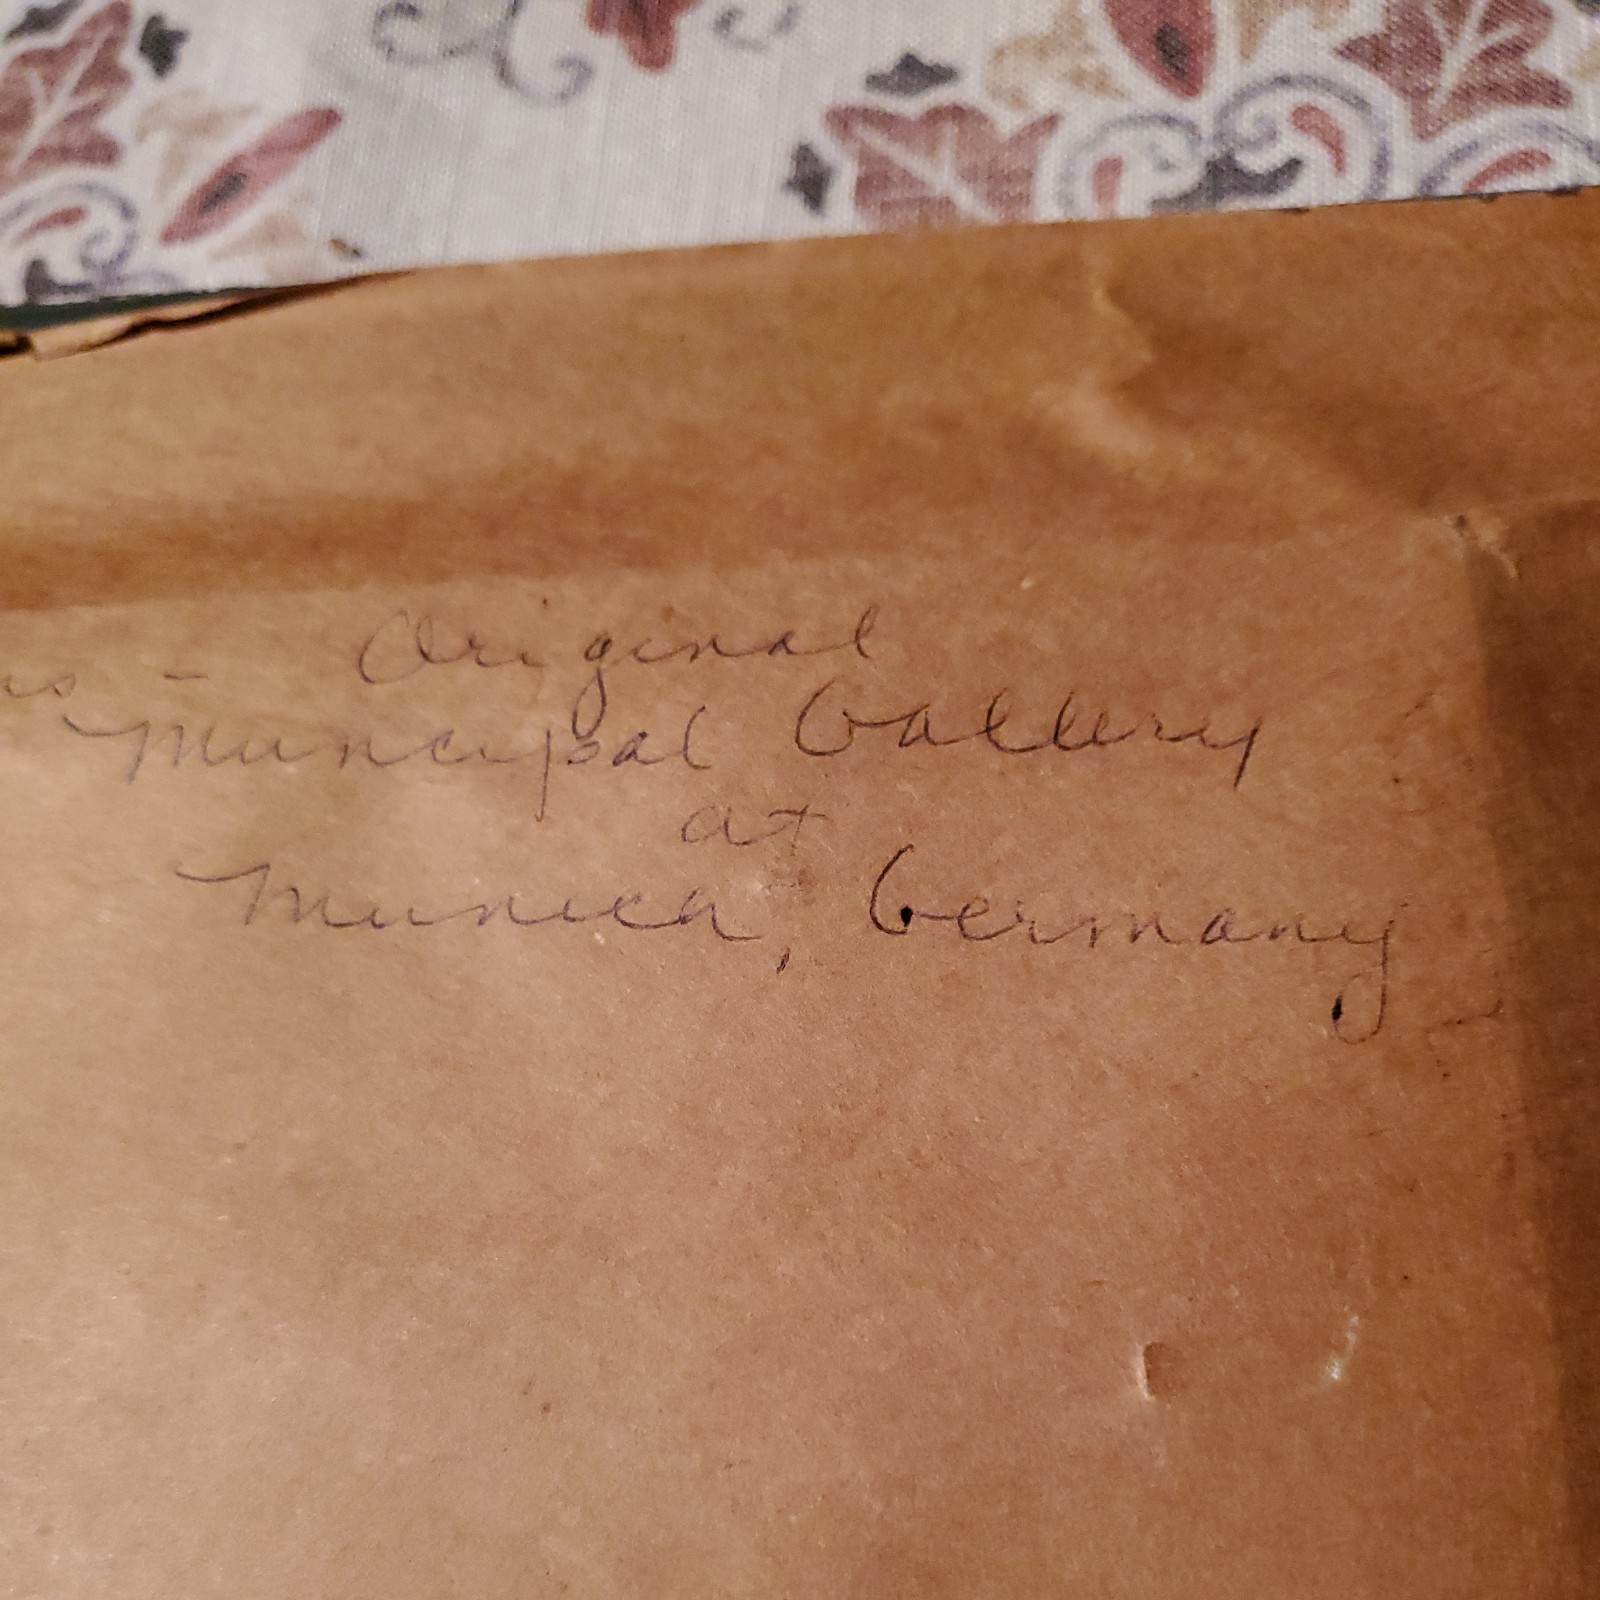 Original
Muncipal Gallery
at
Munich, Germany